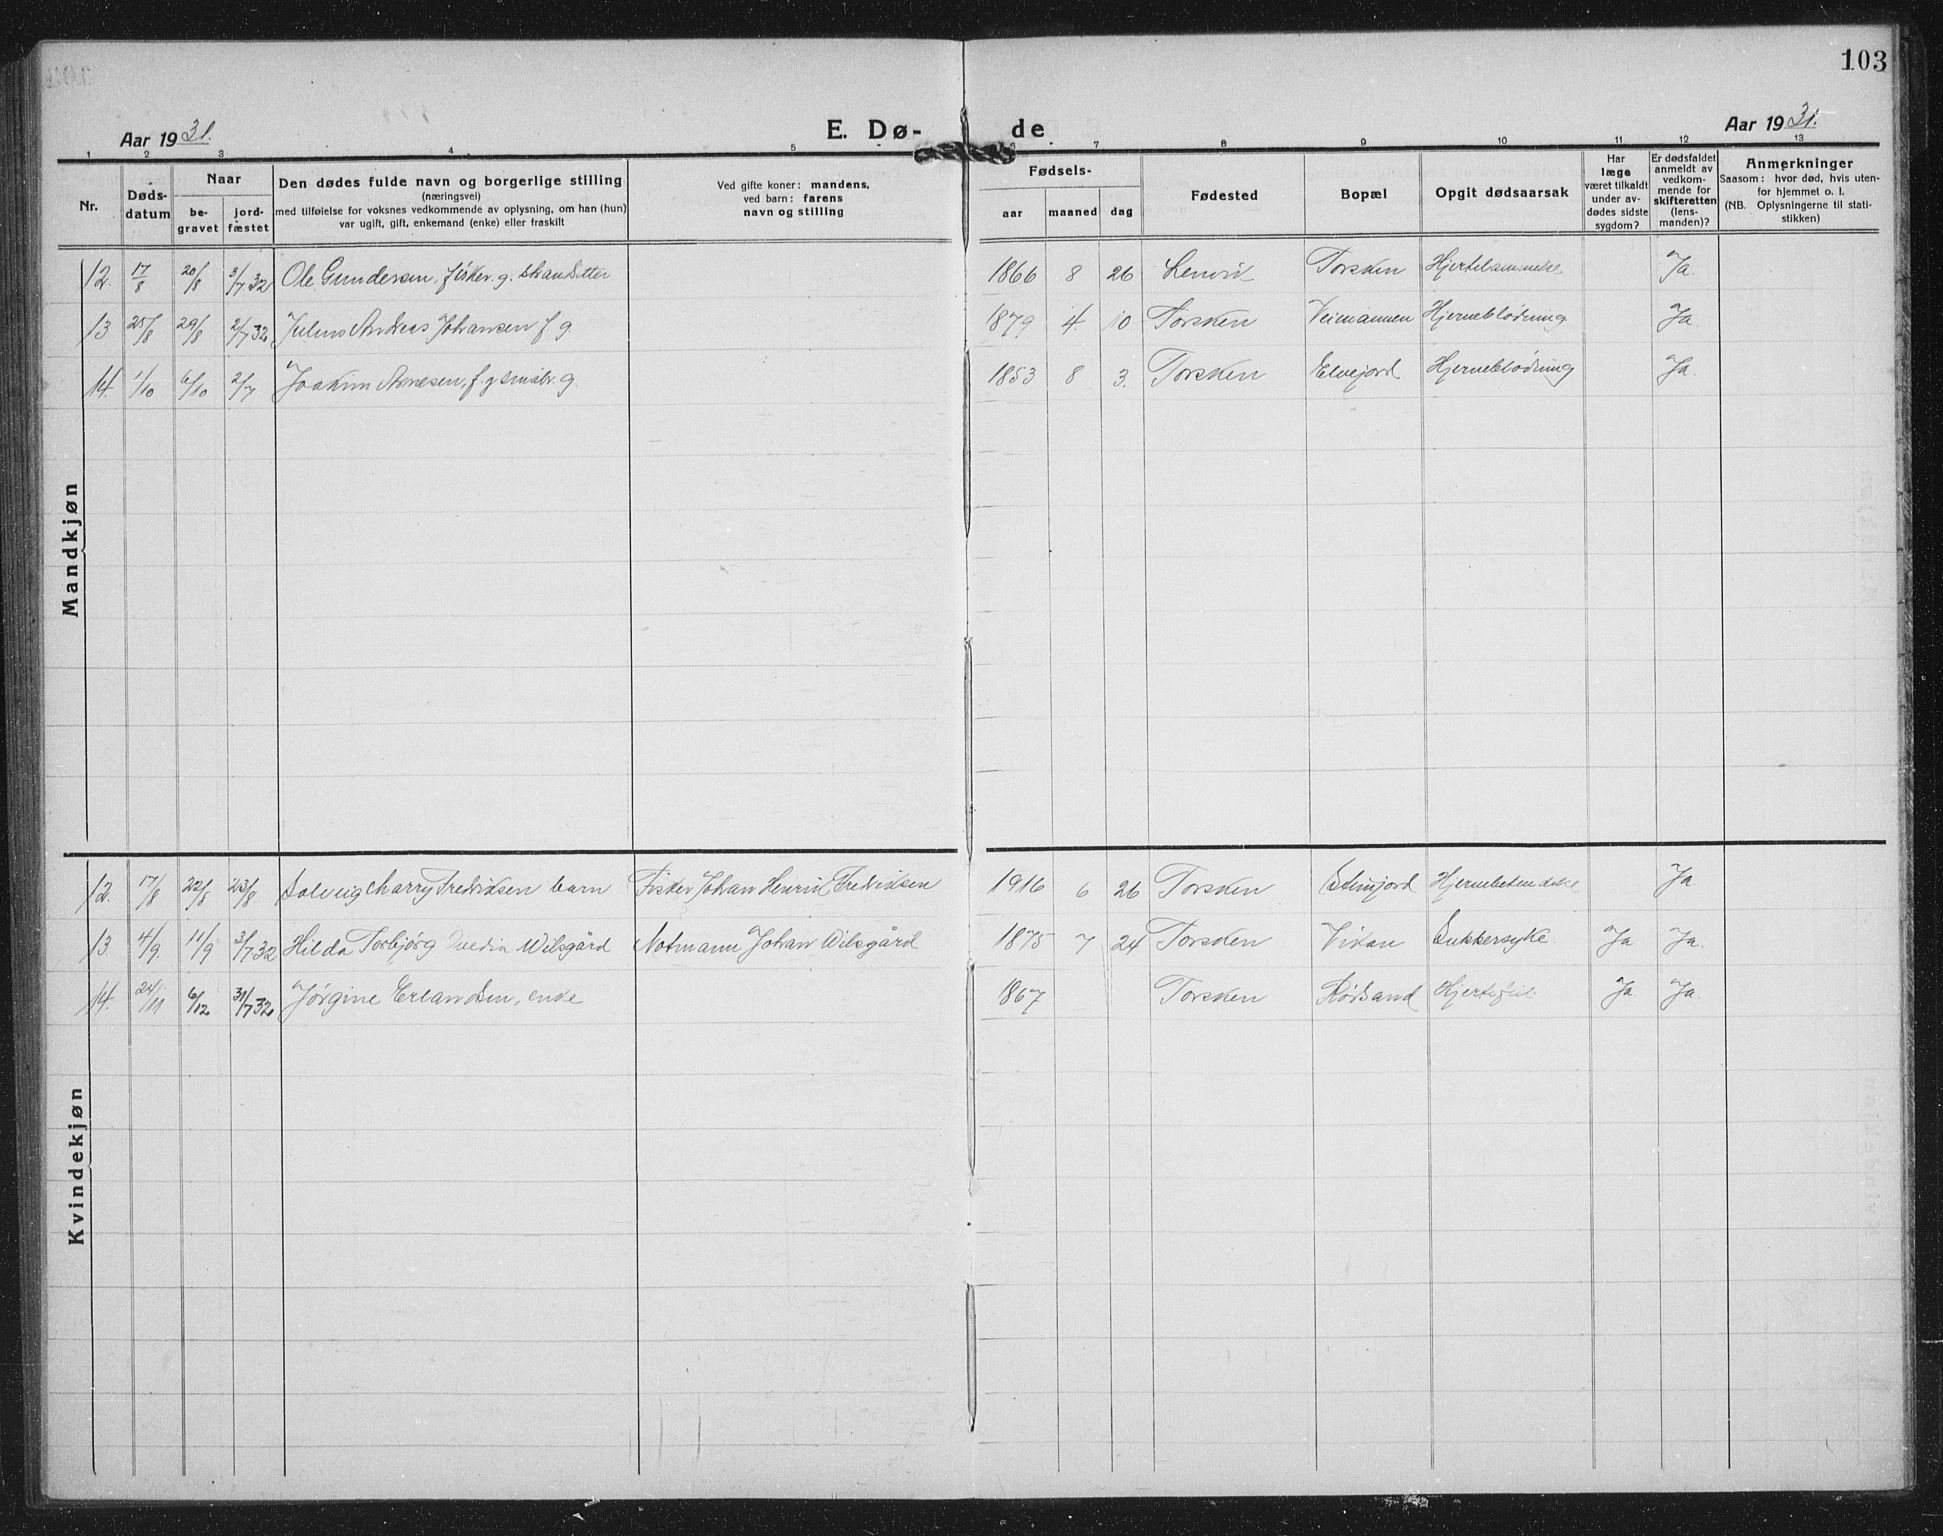 103
Aar 1931. E. Dø- de Aar 1931.
1 2 3 4 5 6 7 8 9 10 11 12 13
Nr. Døds-datum Naar be-gravet jord-fæstet Den dødes fulde navn og borgerlige stilling (næringsvei) med tilføielse for voksnes vedkommende av oplysning, om han (hun) var ugift, gift, enkemand (enke) eller fraskilt Ved gifte koner: mandens, ved barn: farens navn og stilling Fødsels- aar maaned dag Fødested Bopæl Opgit dødsaarsak Har læge været tilkaldt under av-dødes sidste sygdom? Er dødsfaldet anmeldt av vedkom-mende for skifteretten (lens-manden)? Anmerkninger Saasom: hvor død, hvis uten-for hjemmet o. l. (NB. Oplysningerne til stati-stikken)
Mandkjøn
12. 17/8 20/8 3/7 32 Ole Gundersen, fisker. g. 1866 8 26 Lenvik Torsken Hjertelammelse Ja
13 25/8 29/8 2/7 32 Julius Andreas Johansen f. g. 1879 4. 10 Torsken Veimannen Hjerneblødning Ja
14. 1/10 6/10 2/7 Joakim Arnesen, f. g småbr. g. 1853 8 3. Torsken Elvejord Hjerneblødning Ja.
Kvindekjøn
12. 17/8 22/8 23/8 Solveig Marry Fredriksen barn Fisker Johan Henrik Fredriksen 1916 6 26 Torsken Hjernebetendelse Ja
13. 4/9. 11/9 3/7 32 Hilda Torbjørg Wilsgård Notmann Johan Wilsgård 1875 7 24 Torsken Vikan Sukkersyke Ja Ja.
14. 24/11 6/12 31/7 32 Jørgine Erlandsen, enke 1867 Torsken Rødsand Hjertefeil Ja. Ja.